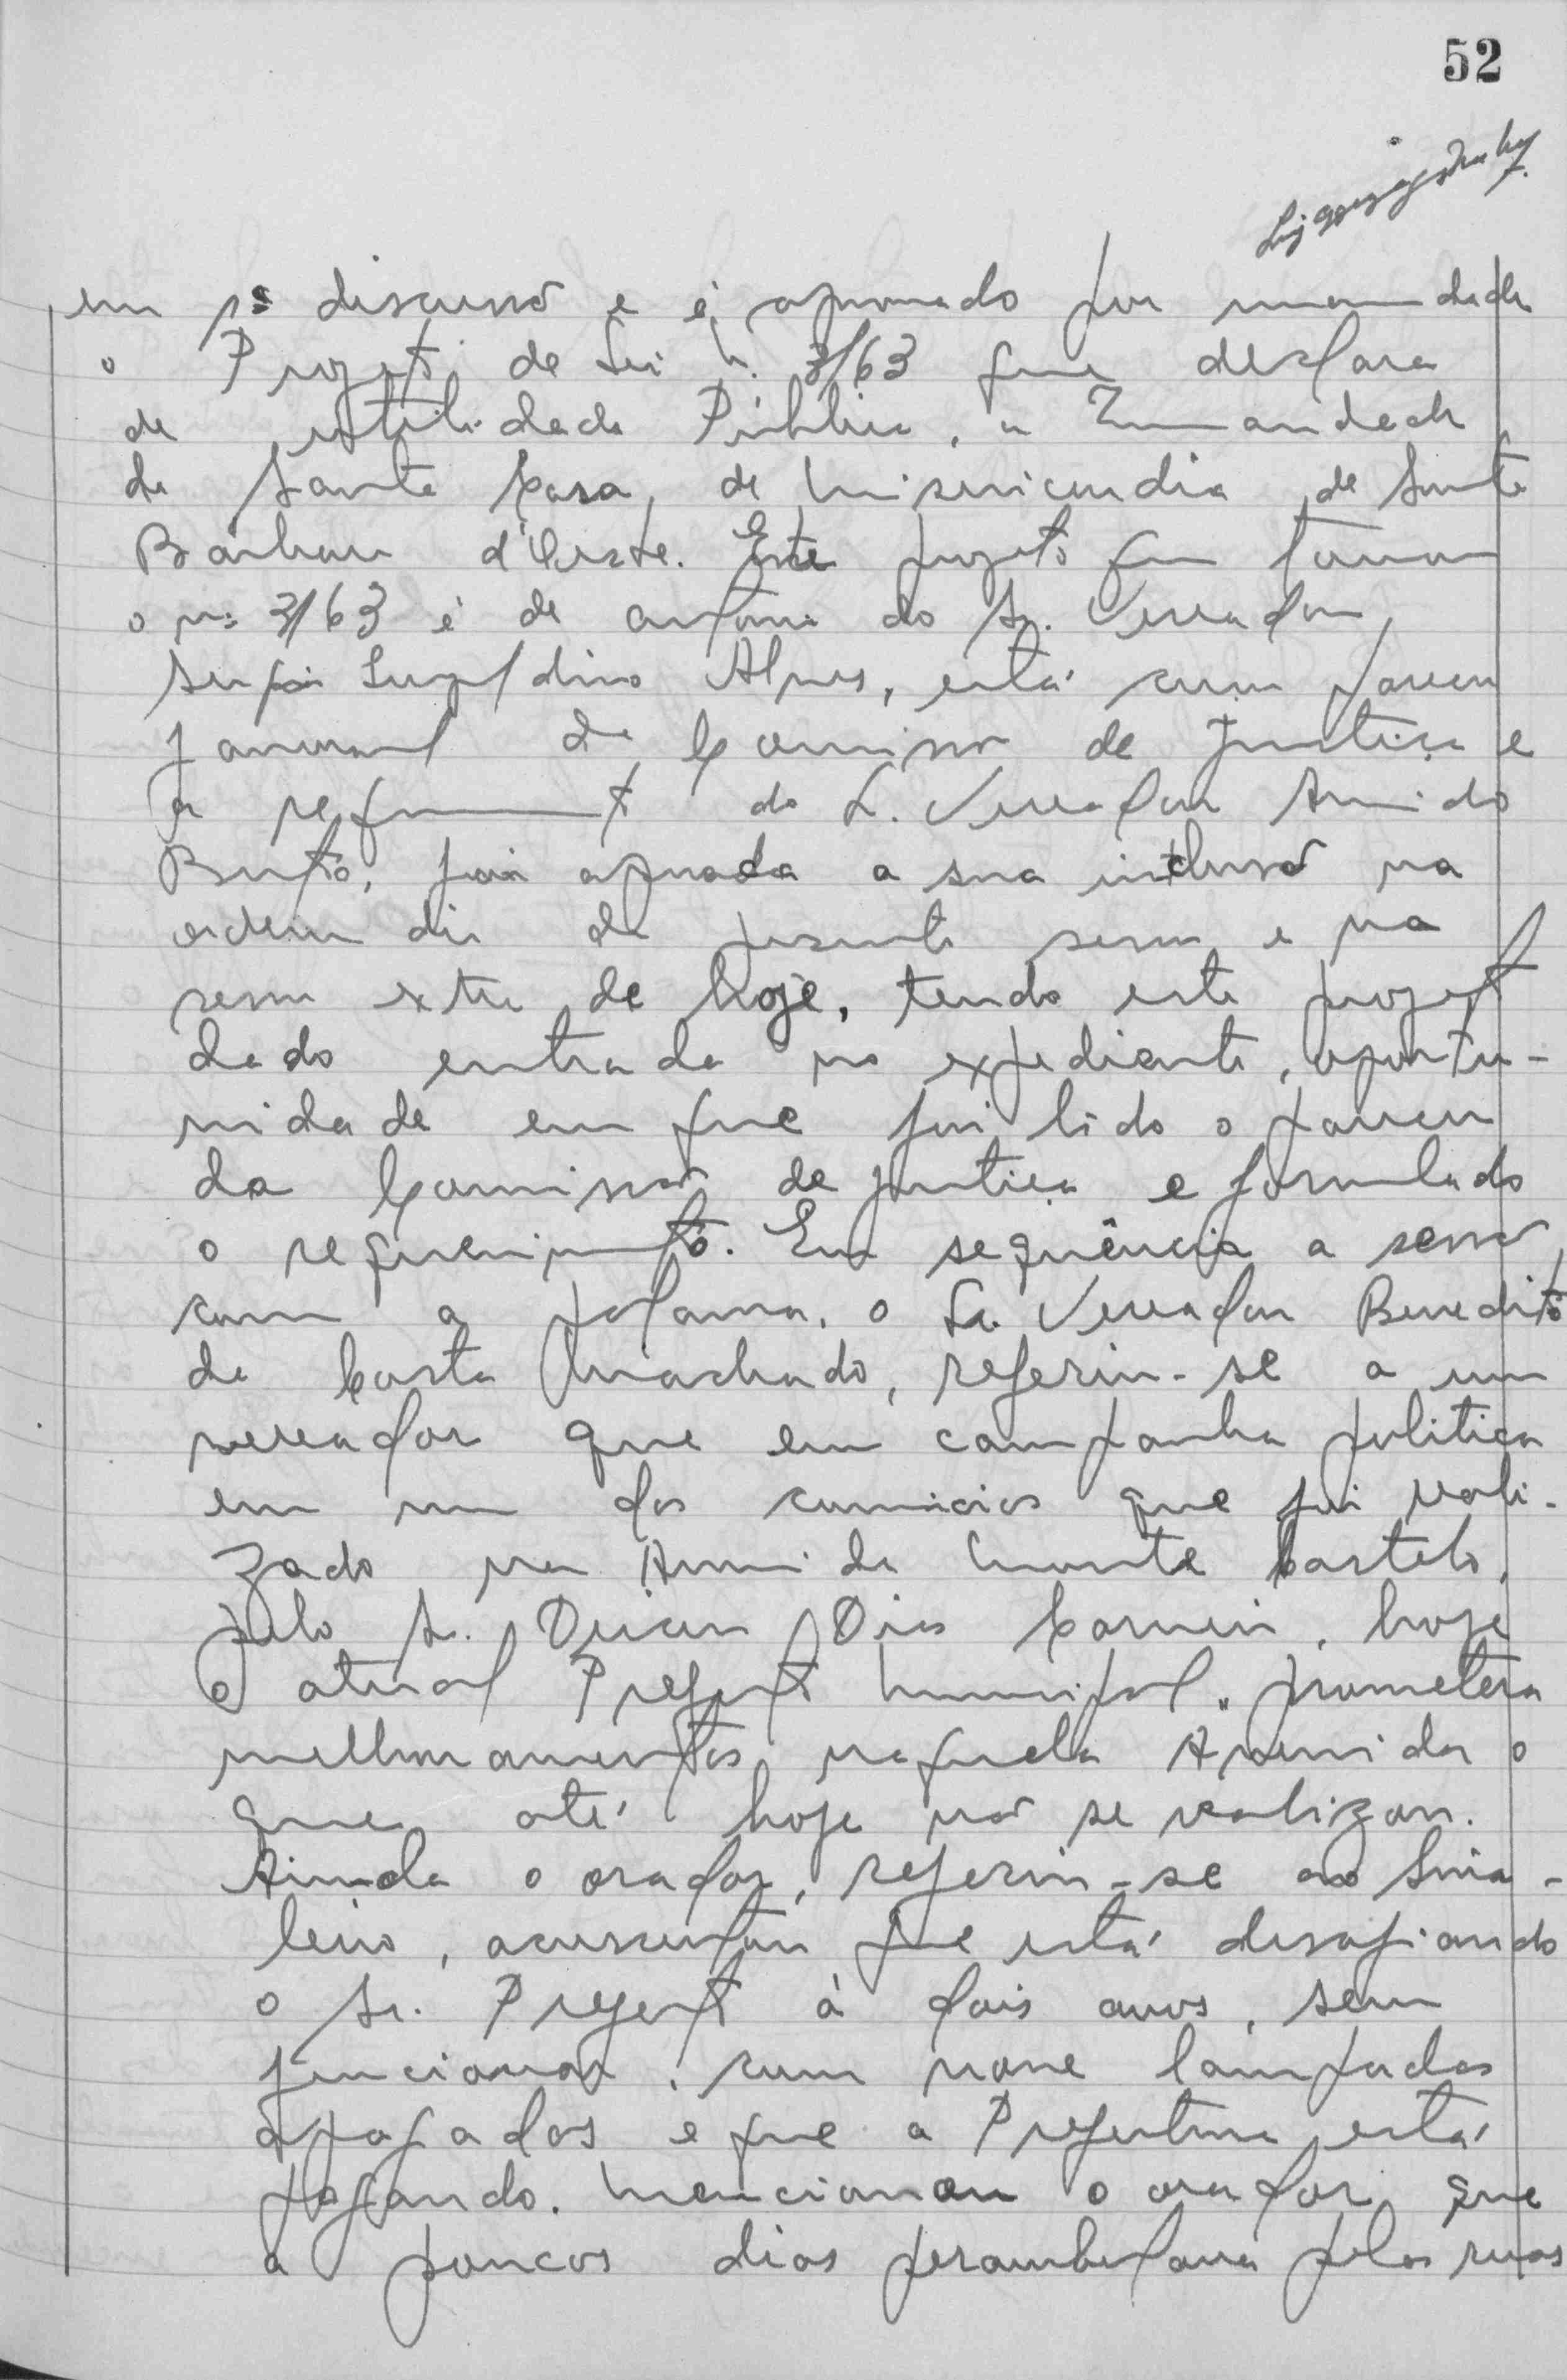 52
em 1ª discussão e é aprovado por unanimidade
o Projeto de Lei n. 3/63 que declara
de utilidade Pública, a Irmandade
da Santa Casa, de Misericordia de Santa
Bárbara d'Oeste. Este projeto que tomou
o nº 3/63 é de autoria do Sr. Vereador,
Alves, está com parecer
favoravel da Comissão de Justiça e
a requerimento do Sr. Vereador
foi aprovada a sua inclusão na
ordem dia da presente sessão e na
sessão extra de hoje, tendo este projeto
dado entrada no expediente, oportu-
nidade em que foi lido o parecer
da Comissão de Justiça e formulado
o requerimento. Em sequência a sessão
com a palavra, o Sr. Vereador Benedito
da Costa Machado, referiu-se a um
vereador que em campanha politica
em um dos comicios que foi reali-
zado na Avenida Monte Castelo,
pelo Sr. Dias hoje
o atual Prefeito Municipal, prometera
melhoramentos naquela Avenida o
que até hoje não se realizou.
Ainda o orador, referiu-se ao Sina-
leiro, acrescentou que está desafiando
o Sr. Prefeito à dois anos, sem
funcionar, com nove lampadas
apagadas e que a Prefeitura está
pagando. Mencionou o orador que
a poucos dias perambulava pelas ruas